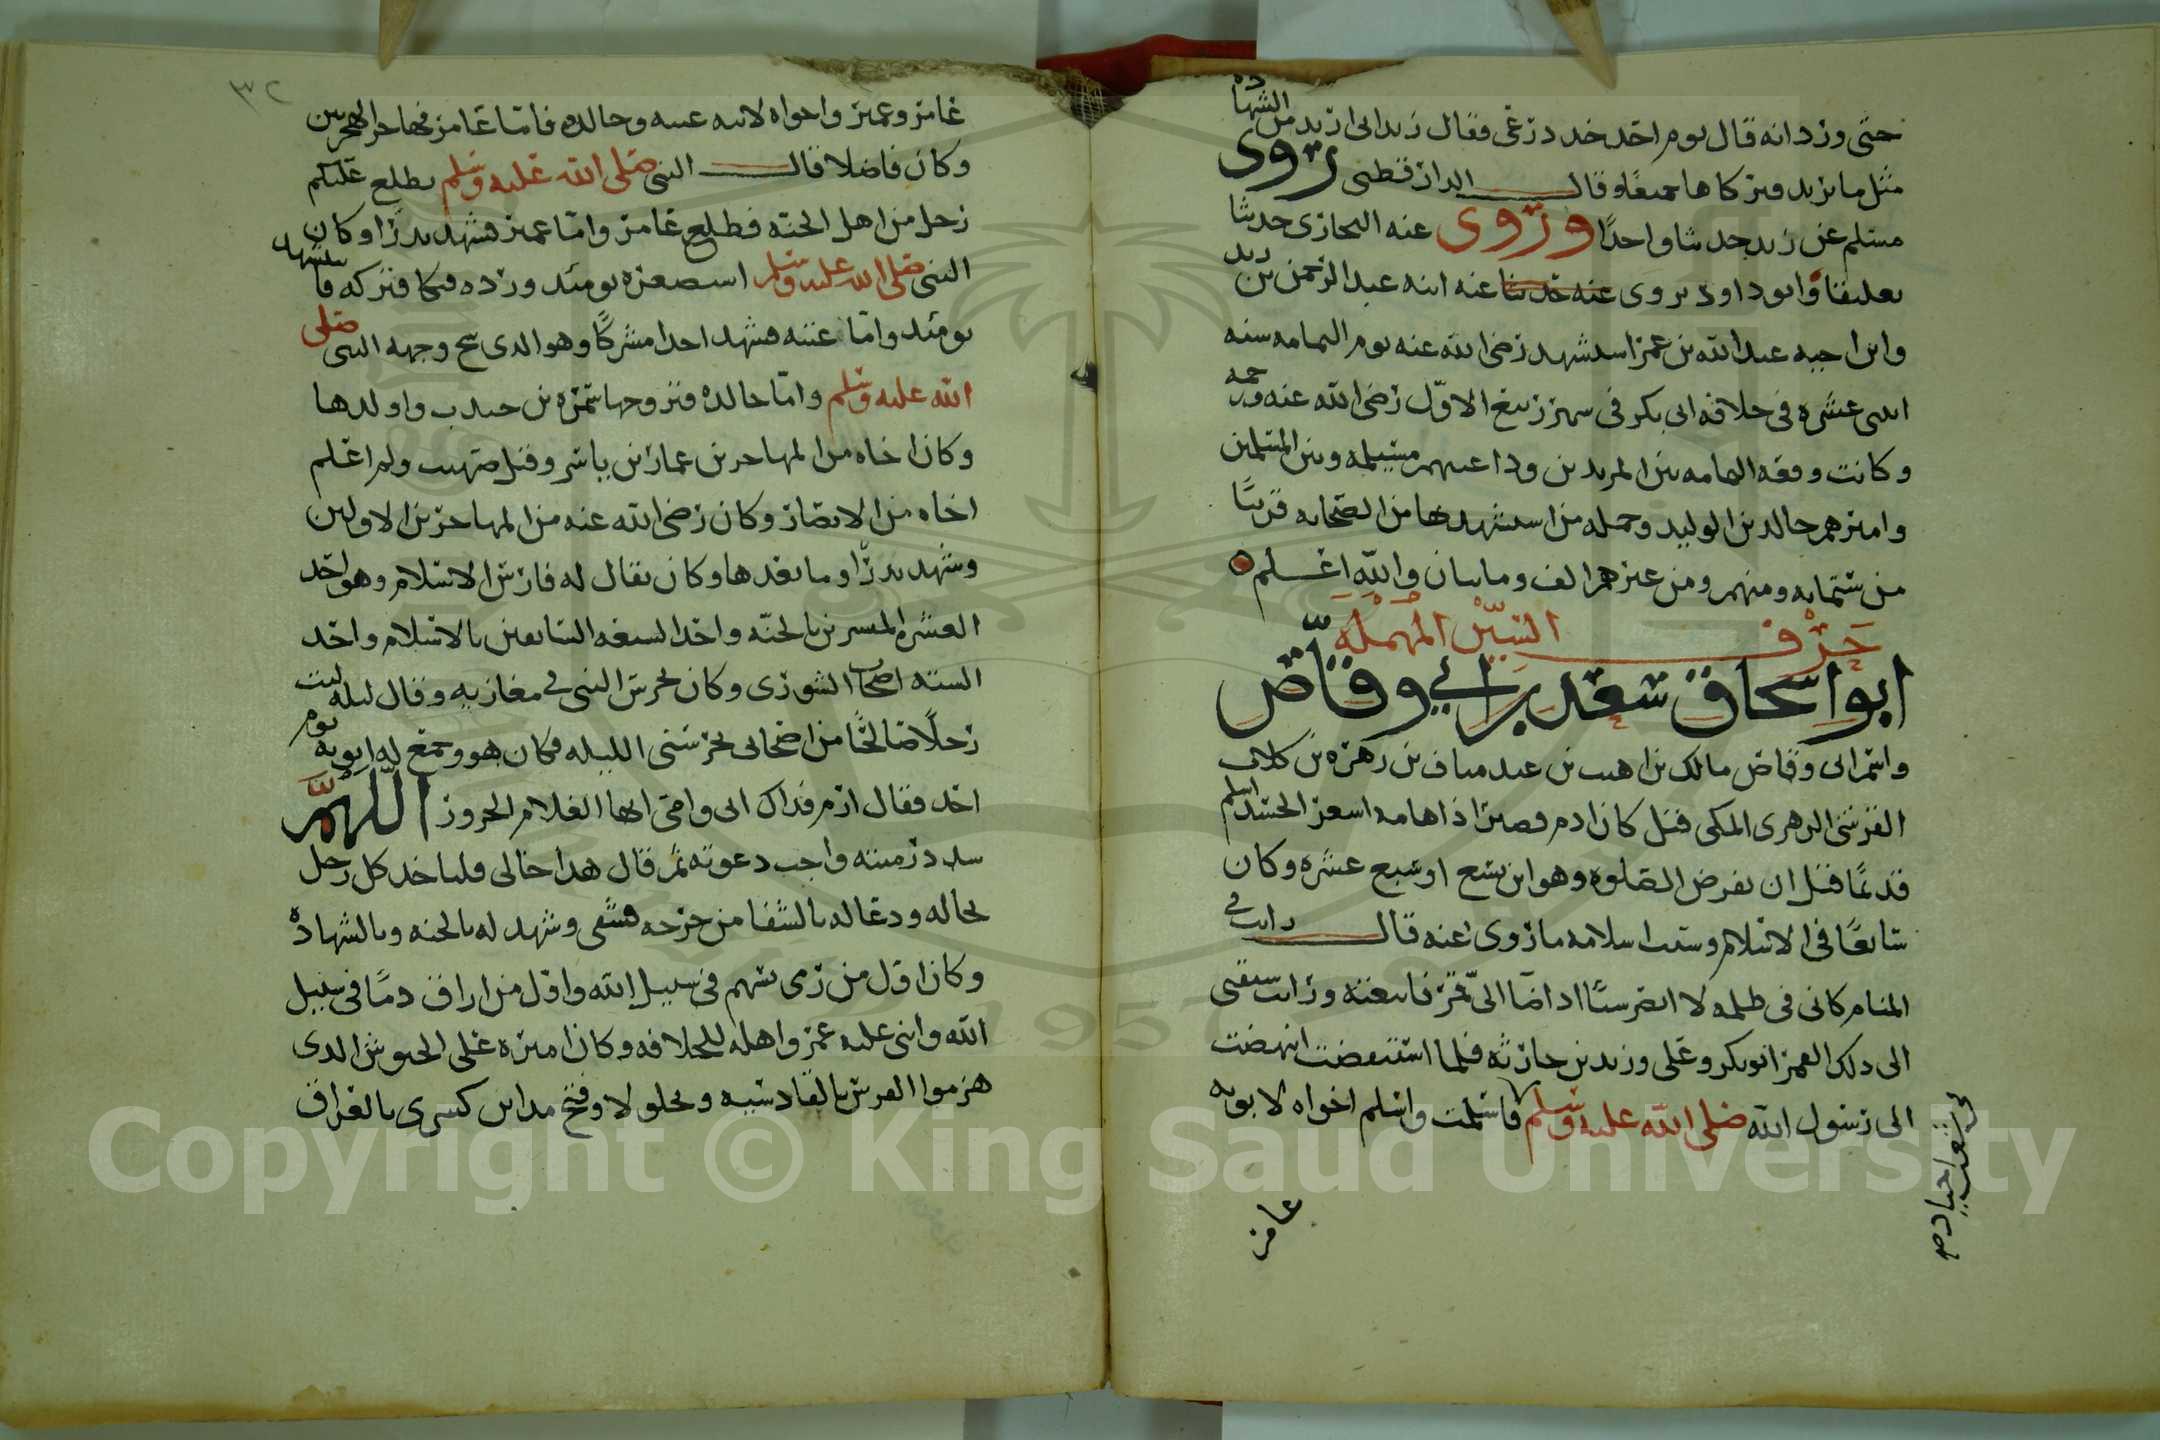 حتى ورد انه قال يوم احد خد درعى فقال زيد انى اريد من الشهادة
مثل ما تريد فتركاها جميعا وقال الدارقطنى روى
مسلم عن زيد حديثا واحدًا وروى عنه البخارى حديثا
تعليقا وابو داود يروى عنه حديثا عنه ابنه عبد الرحمن بن زيد
وابن اخيه عبد الله بن عمر استشهد رضى الله عنه يوم اليمامه سنه
اثنى عشره فى خلافه ابى بكر فى شهر ربيع الاوّل رضى الله عنه ورحمه
وكانت وقعه اليمامه بين المرتدين وداعيهم مسيلمه وبين المسلمين
واميرهم خالد بن الوليد وجمله من استشهد بها من الصحابه قريبًا
من ستمايه ومنهم ومن غيرهم الف ومايتان والله اعلم
حرف السين المهمله
ابو اسحاق سعد بن ابي وقاص
واسم ابى وقاص مالك بن اهيب بن عبد مناف بن زهره بن كلاب
القرشى الزهرى المكى قيل كان ادم قصيرًا ذا هامه اسعر الجسد اسلم
قديمًا قبل ان تفرض الصلوة وهو ابن تسع او سبع عشره وكان
سابعًا فى الاسلام وسبب اسلامه ما روى عنه قال رايت في
المنام كانى فى ظلمه لا ابصر شيئًا اذ اضآ الىّ قمر فاتبعته ورايت سبقنى
الى ذلك القمر ابو بكر وعلى وزيد بن حارثه فلما استيقضت انهضت
الى رسول الله صلى الله عليه وسلم فاسلمت واسلم اخواه لابويه
عامر
عامر وعمير واخواه لابيه عتبه وخالده فاما عامر فهاجر الهجرتين
وكان فاضلا قال النبى صلى الله عليه وسلم يطلع عليكم
رجل من اهل الجنه فطلع عامر واما عمير فشهد بدرًا وكان
النبى صلى الله عليه وسلم استصغره يومئد ورده فبكا فتركه فاستشهد
يومئد واما عتبه فشهد احدا مشركًا وهو الدى شج وجهه النبى صلى
الله عليه وسلم واما خالده فتزوجها سمره بن جندب واولدها
وكان اخاه من المهاجرين عمار بن ياسر وقيل صهيب ولم اعلم
اخاه من الانصار وكان رضى الله عنه من المهاجرين الاولين
وشهد بدرًا وما بعدها وكان يقال له فارس الاسلام وهو احد
العشره المبشرين بالجنّه واحد السبعه السابقين بالاسلام واحد
السته اصحاب الشورى وكان يحرس النبى في مغازيه وقال ليله ليت
رجلًا صالحًا من اصحابى يحرسنى الليله فكان هو وجمع له ابويه يوم
احد فقال ارم فداك ابى وامى ايها الغلام الحزور اللهم
سدد رميته واجب دعوته ثم قال هدا خالى فلياخد كل رجل
بخاله ودعا له بالشفا من جرحه فشفى وشهد له بالجنه وبالشهادة
وكان اول من رمى بسهم فى سبيل الله واول من اراق دمًا فى سبيل
الله واثنى عليه عمر واهله للخلافه وكان اميره على الجيوش الدى
هزموا الفرس بالقادسيه وبجلولا وفتح مداين كسرى بالعراق
٣٢
Copyright © King Saud University